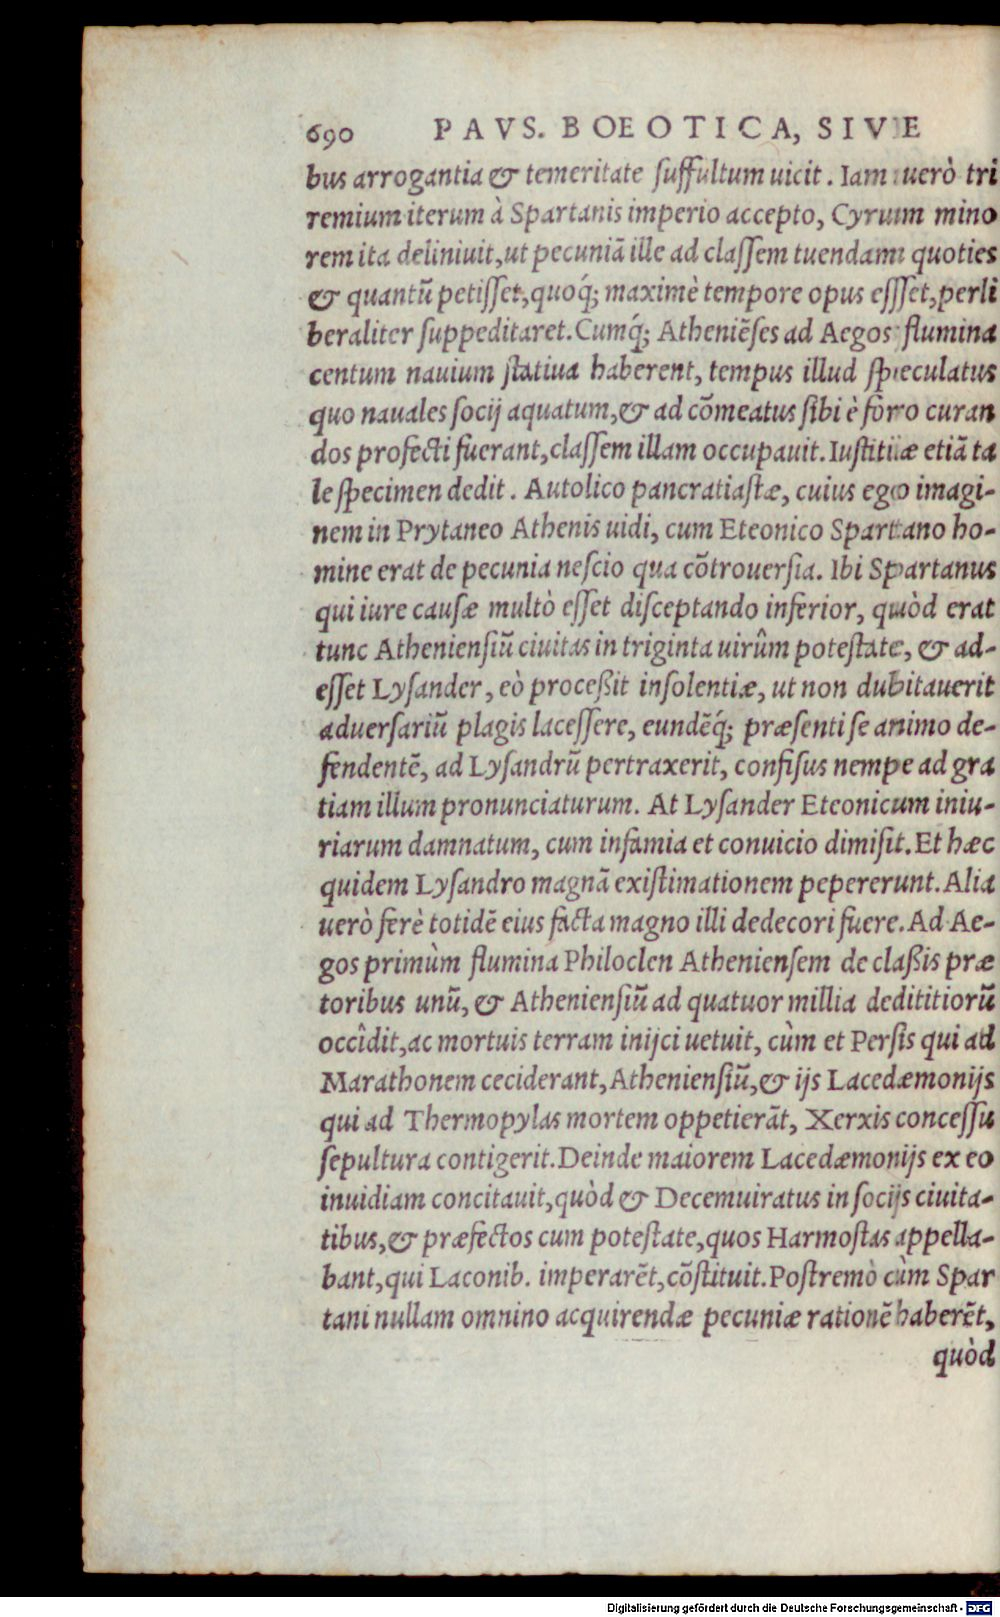 690 PAVS. BOEOTICA, SIVE
bus arrogantia & temeritate suffultum uicit. Iam uerò tri
remium iterum à Spartanis imperio accepto, Cyrum mino
rem ita deliniuit, ut pecuniā ille ad classem tuendam quoties
& quantū petisset, quoq́; maximè tempore opus essset, perli
beraliter suppeditaret. Cumq́; Atheniēses ad Aegos flumina
centum nauium statiua haberent, tempus illud speculatus
quo nauales socij aquatum, & ad cōmeatus sibi è foro curan
dos profecti fuerant, classem illam occupauit. Iustitiæ etiā ta
le specimen dedit. Autolico pancratiastæ, cuius ego imagi-
nem in Prytaneo Athenis uidi, cum Eteonico Spartano ho-
mine erat de pecunia nescio qua cōtrouersia. Ibi Spartanus
qui iure causæ multò esset disceptando inferior, quòd erat
tunc Atheniensiū ciuitas in triginta uirûm potestate, & ad-
esset Lysander, eò proceßit insolentiæ, ut non dubitauerit
aduersariū plagis lacessere, eundēq́; præsenti se animo de-
fendentē, ad Lysandrū pertraxerit, confisus nempe ad gra
tiam illum pronunciaturum. At Lysander Eteonicum iniu-
riarum damnatum, cum infamia et conuicio dimisit. Et hæc
quidem Lysandro magnā existimationem pepererunt. Alia
uerò ferè totidē eius facta magno illi dedecori fuere. Ad Ae-
gos primùm flumina Philoclen Atheniensem de claßis præ
toribus unū, & Atheniensiū ad quatuor millia dedititiorū
occîdit, ac mortuis terram inijci uetuit, cùm et Persis qui ad
Marathonem ceciderant, Atheniensiū, & ijs Lacedæmonijs
qui ad Thermopylas mortem oppetierāt, Xerxis concessu
sepultura contigerit. Deinde maiorem Lacedæmonijs ex eo
inuidiam concitauit, quòd & Decemuiratus in socijs ciuita-
tibus, & præfectos cum potestate, quos Harmostas appella-
bant, qui Laconib. imperarēt, cōstituit. Postremò cùm Spar
tani nullam omnino acquirendæ pecuniæ rationē haberēt,
quòd
Digitalisierung gefördert durch die Deutsche Forschungsgemeinschaft - DFG